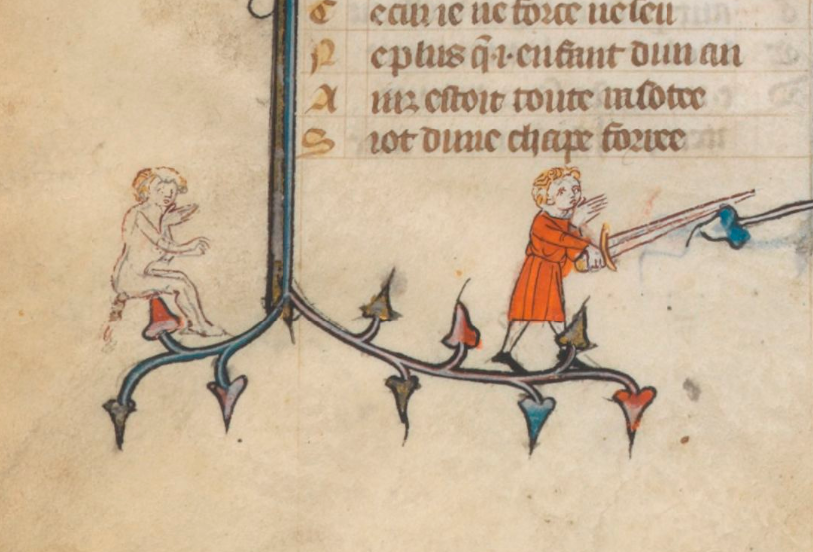 ie ne force ne sen
N e plus q̃ .i. enfant dun an
A inz estoit toute rasotee
S iot dune chape forree